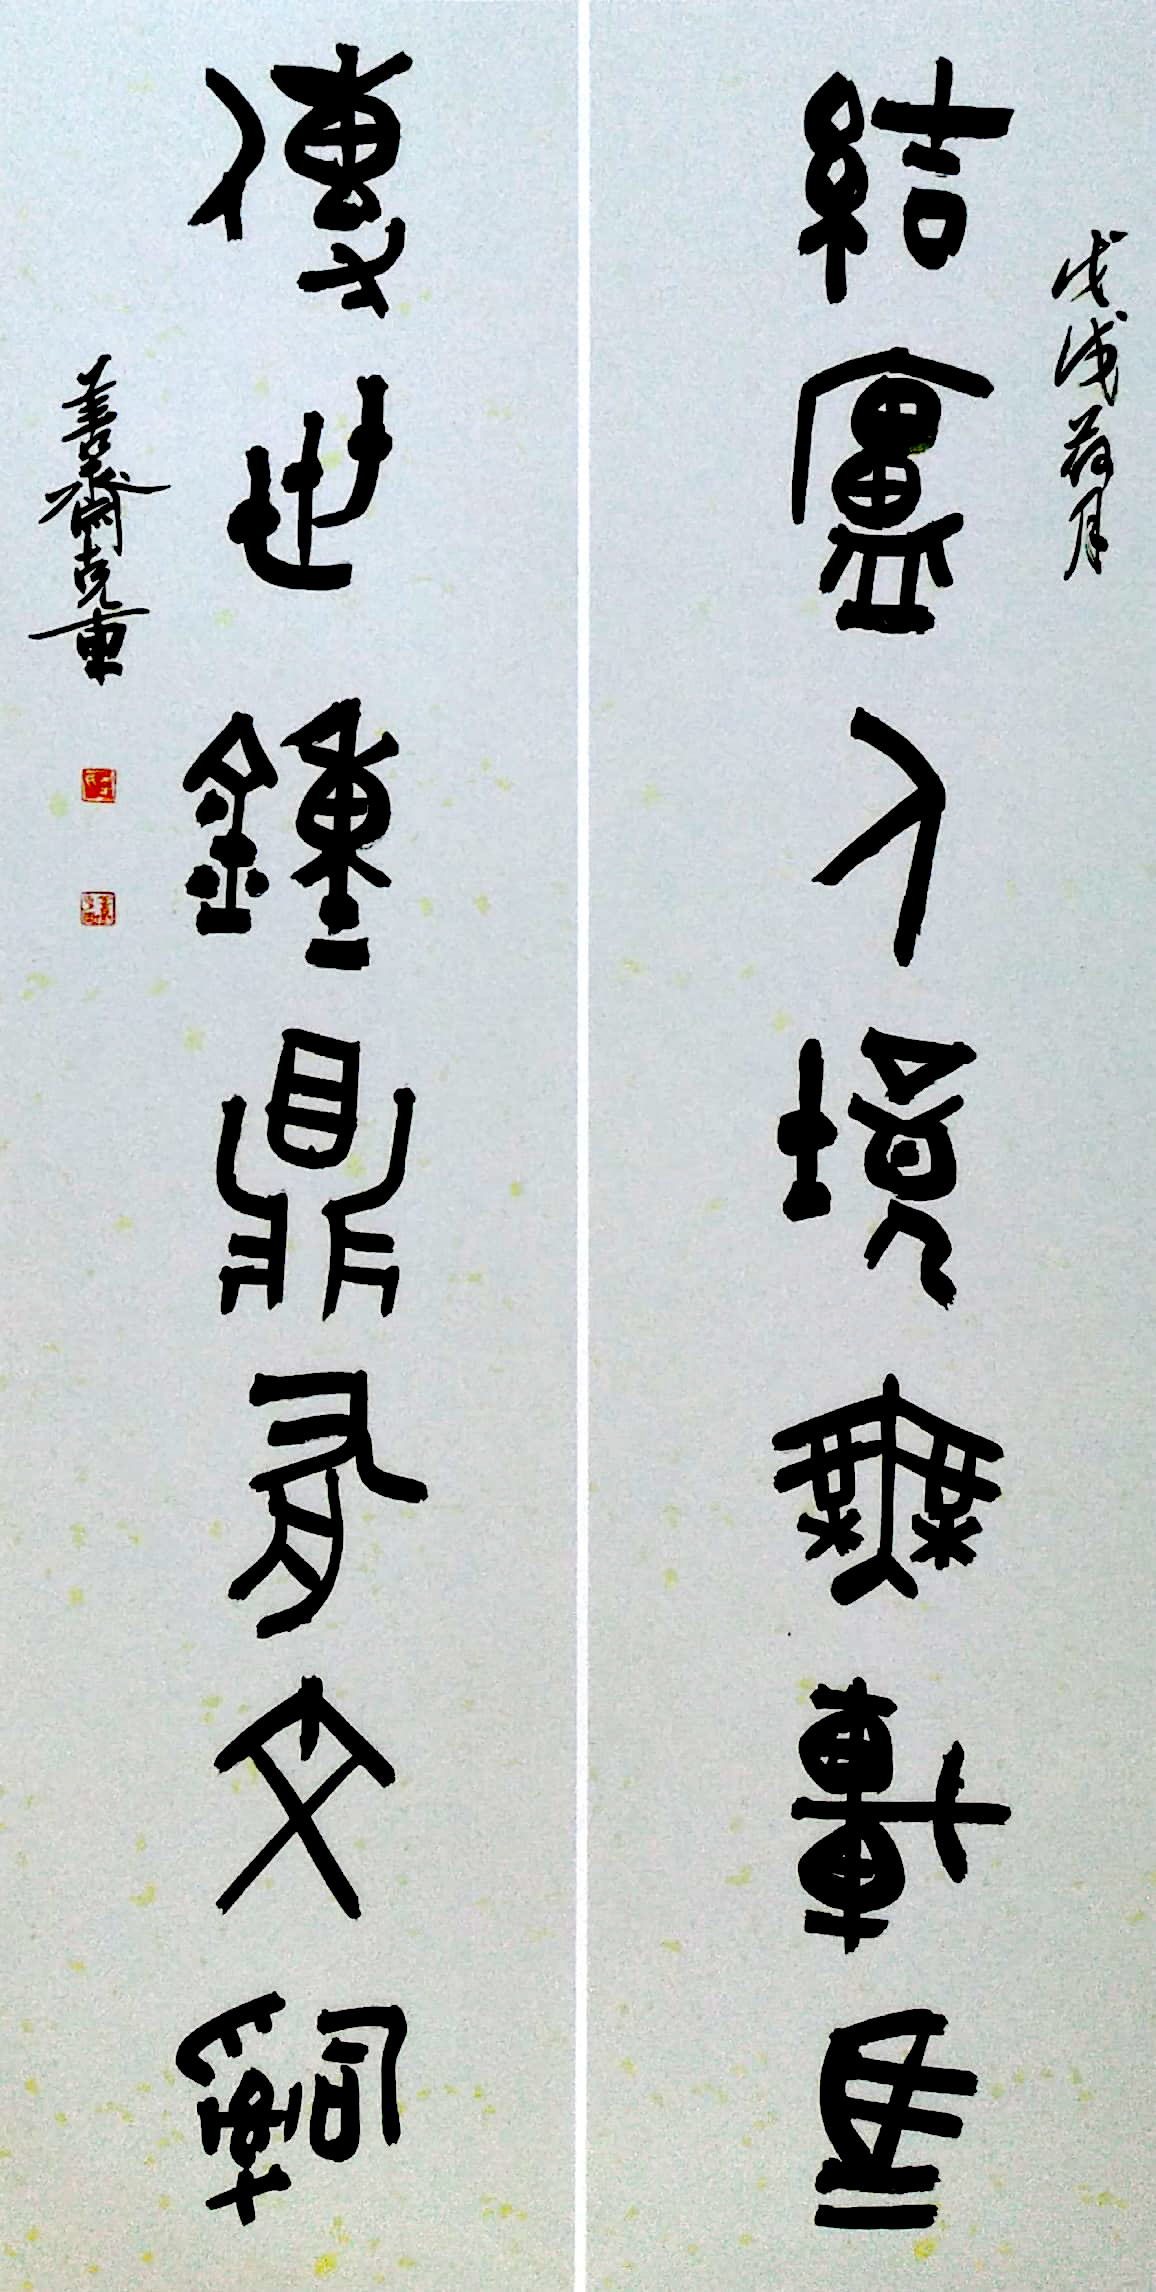 戊戌荷月
結廬人境無車馬
傳世鍾鼎有文辭
善齋克東